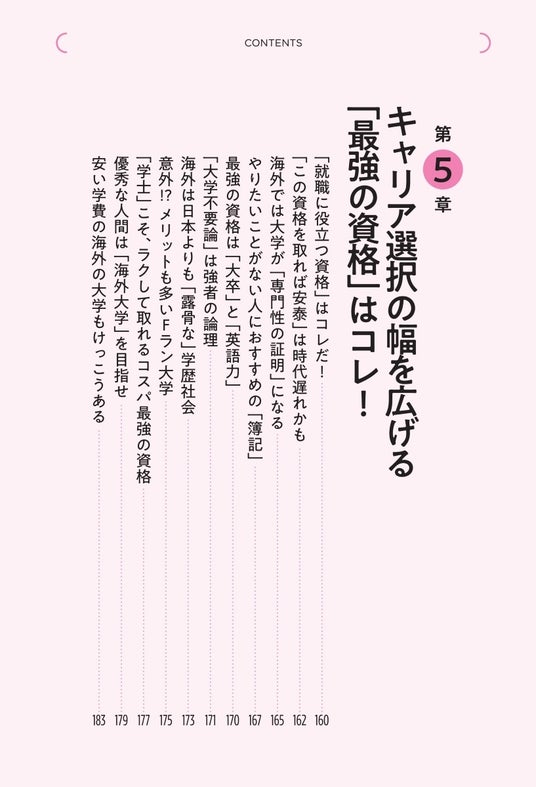 CONTENTS
第5章
キャリア選択の幅を広げる
「最強の資格」はコレ！
「就職に役立つ資格」はコレだ！ 160
「この資格を取れば安泰」は時代遅れかも 162
海外では大学が「専門性の証明」になる 165
やりたいことがない人におすすめの「簿記」 167
最強の資格は「大卒」と「英語力」 170
「大学不要論」は強者の論理 171
海外は日本よりも「露骨な」学歴社会 173
意外!? メリットも多いFラン大学 175
「学士」こそ、ラクして取れるコスパ最強の資格 177
優秀な人間は「海外大学」を目指せ 179
安い学費の海外の大学もけっこうある 183